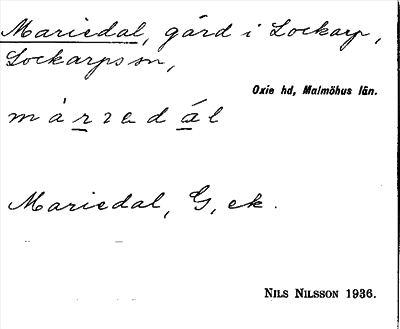 Mariedal, gård i Lockarp,
Lockarps sn,
Oxie hd, Malmöhus län.
Mariedal, G, ek.
NILS NILSSON 1936.